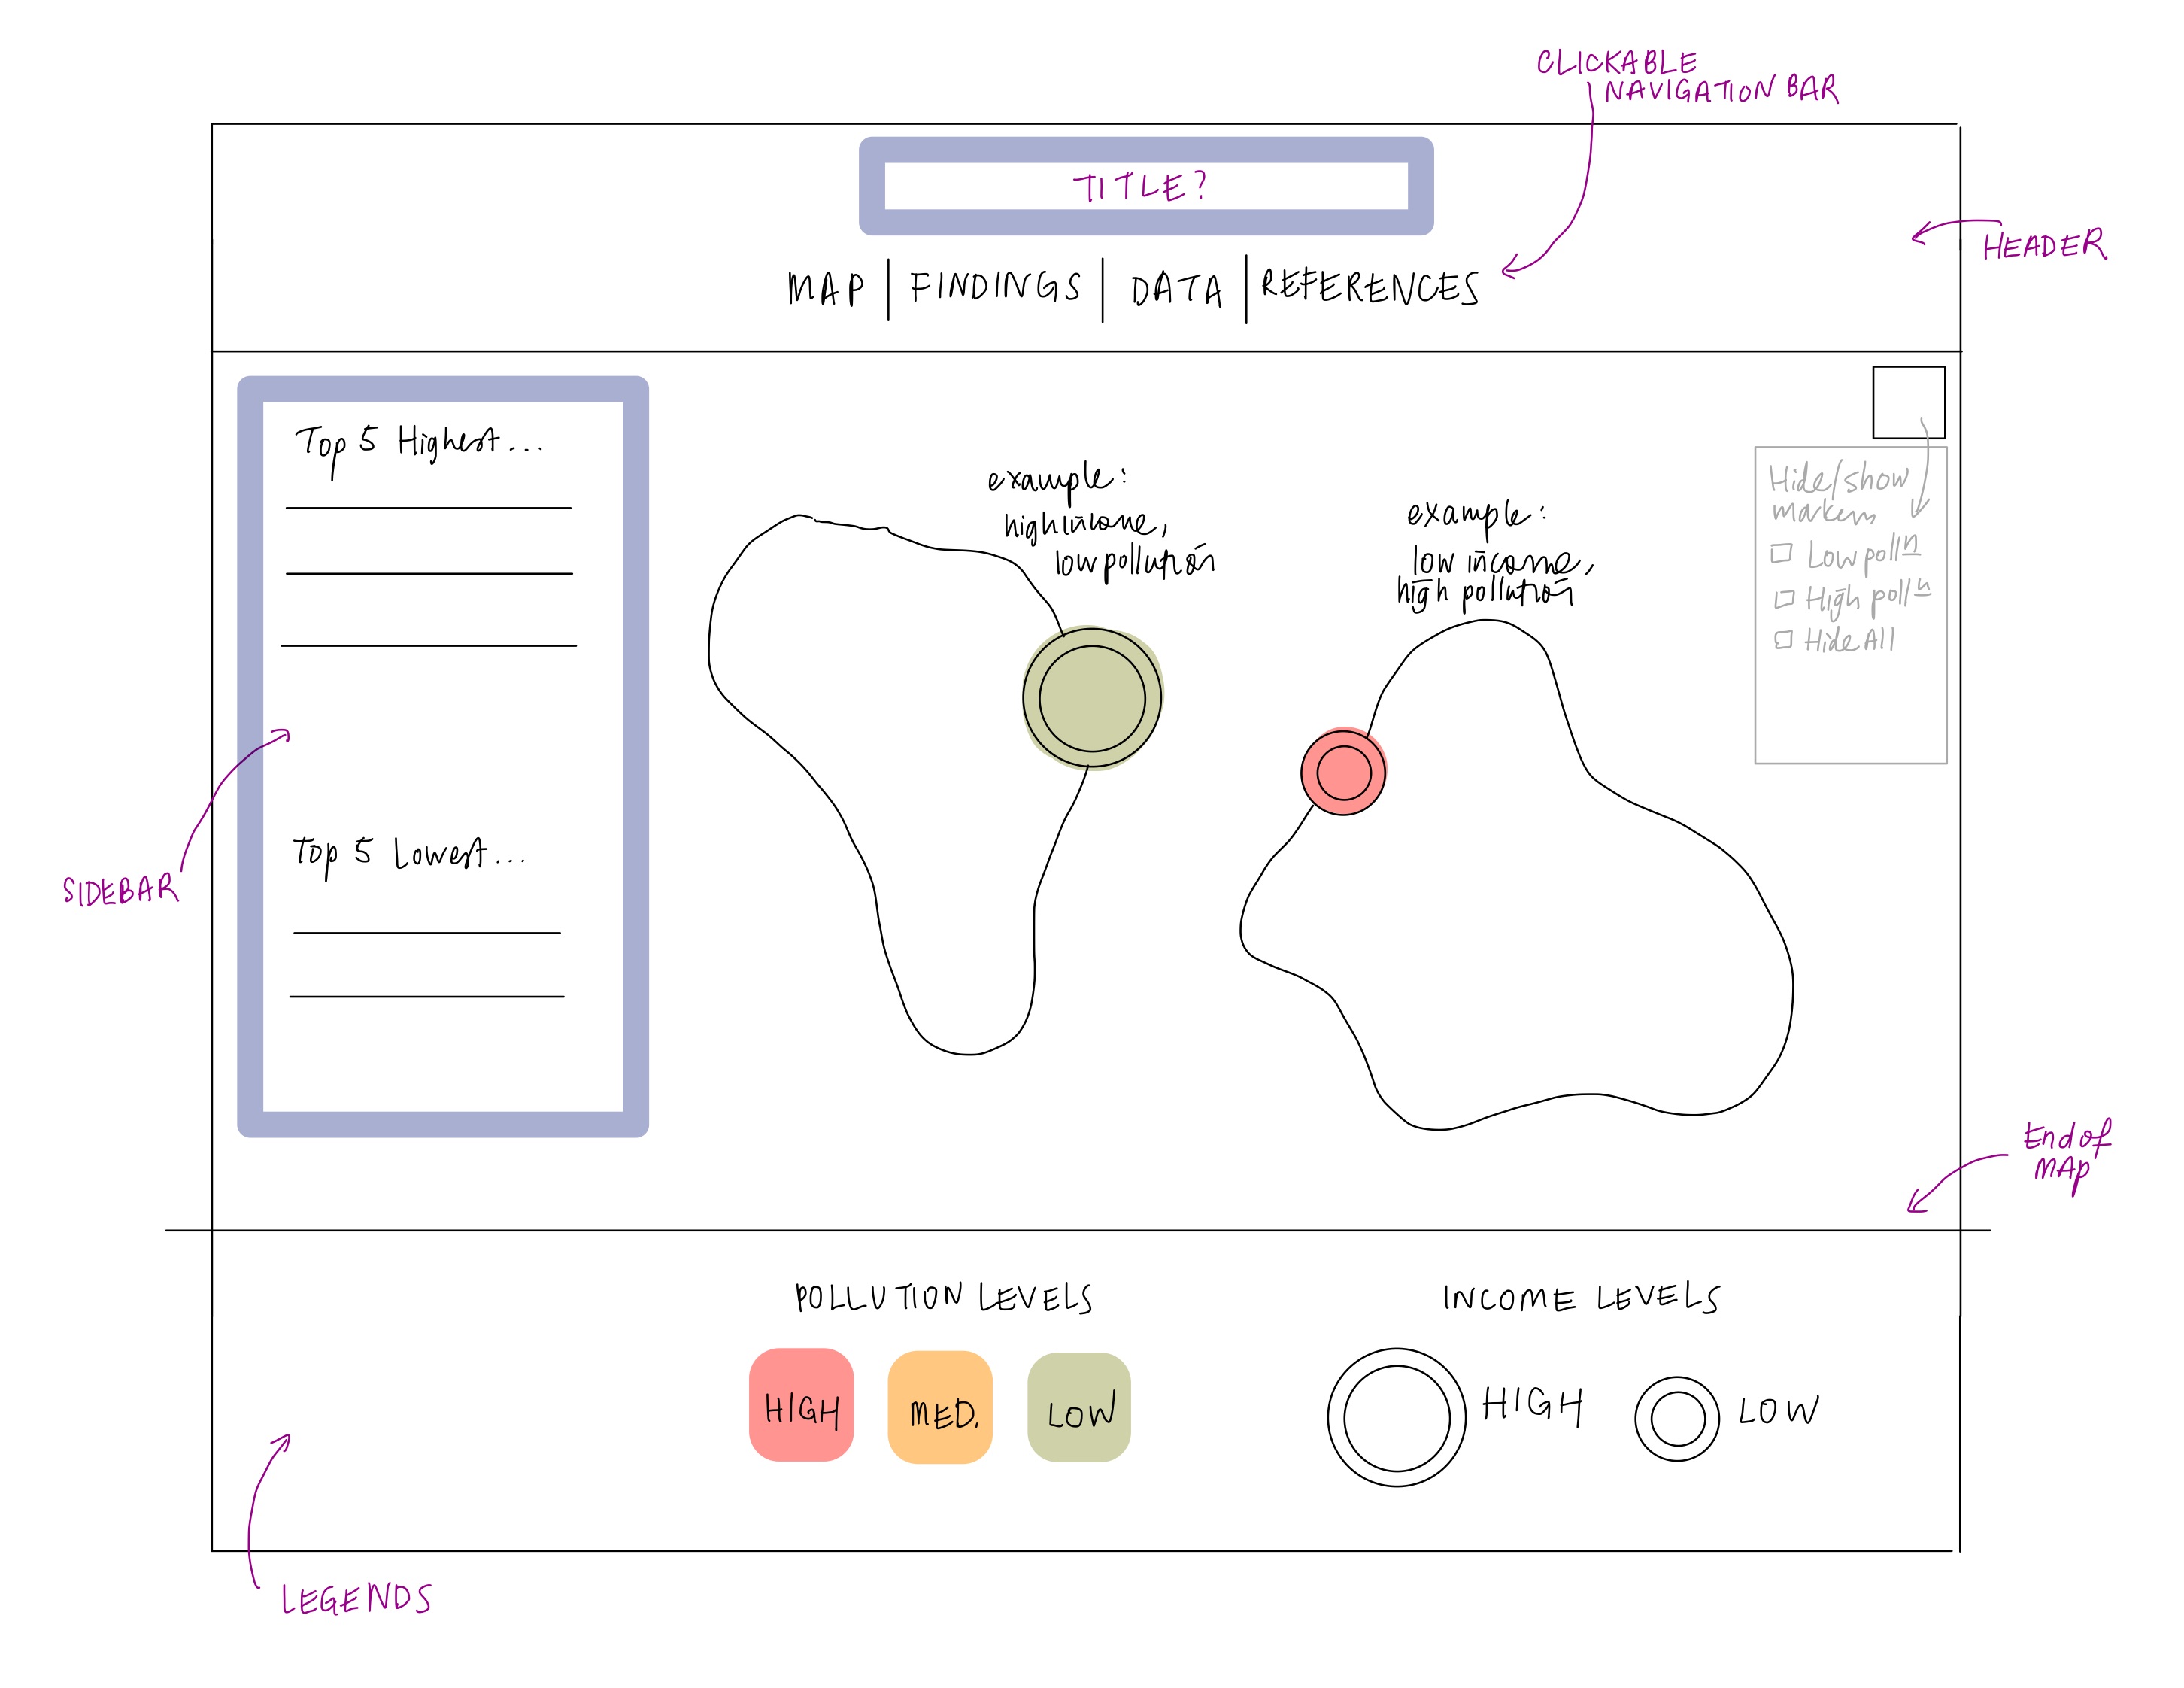 CLICKABLE
NAVIGATION BAR
TITLE?
HEADER
MAP | FINDINGS | DATA | REFERENCES
Top 5 Highest...
Top 5 Lowest...
SIDEBAR
example:
high income,
low pollution
example:
low income,
high pollution
Hide/show
markers
Low polln
High polln
Hide All
End of
MAP
POLLUTION LEVELS
HIGH
MED.
LOW
INCOME LEVELS
HIGH
LOW
LEGENDS